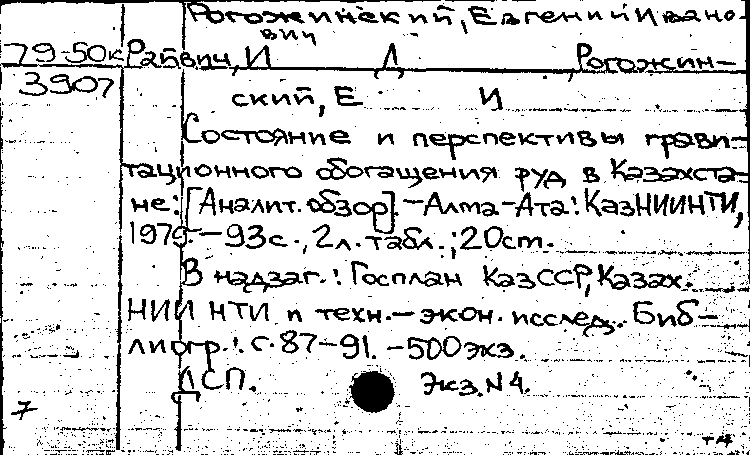 Рогожинский, Евгений Ивано-
вич
79-50к Рапвич, И Д , Рогожин-
3907
ский, Е И
Состояние и перспективы грави-
тационного обогащения руд в Казахста-
не: [Аналит. обзор]. - Алма-Ата: КазНИИНТИ,
1979. - 93с., 2л. табл.; 20см.
В надзаг.: Госплан КазССР, Казах.
НИИ НТИ и техн.-экон. исслед.. Биб-
лиогр.: с. 87-91. - 500экз.
ДСП. Экз. N 4.
7